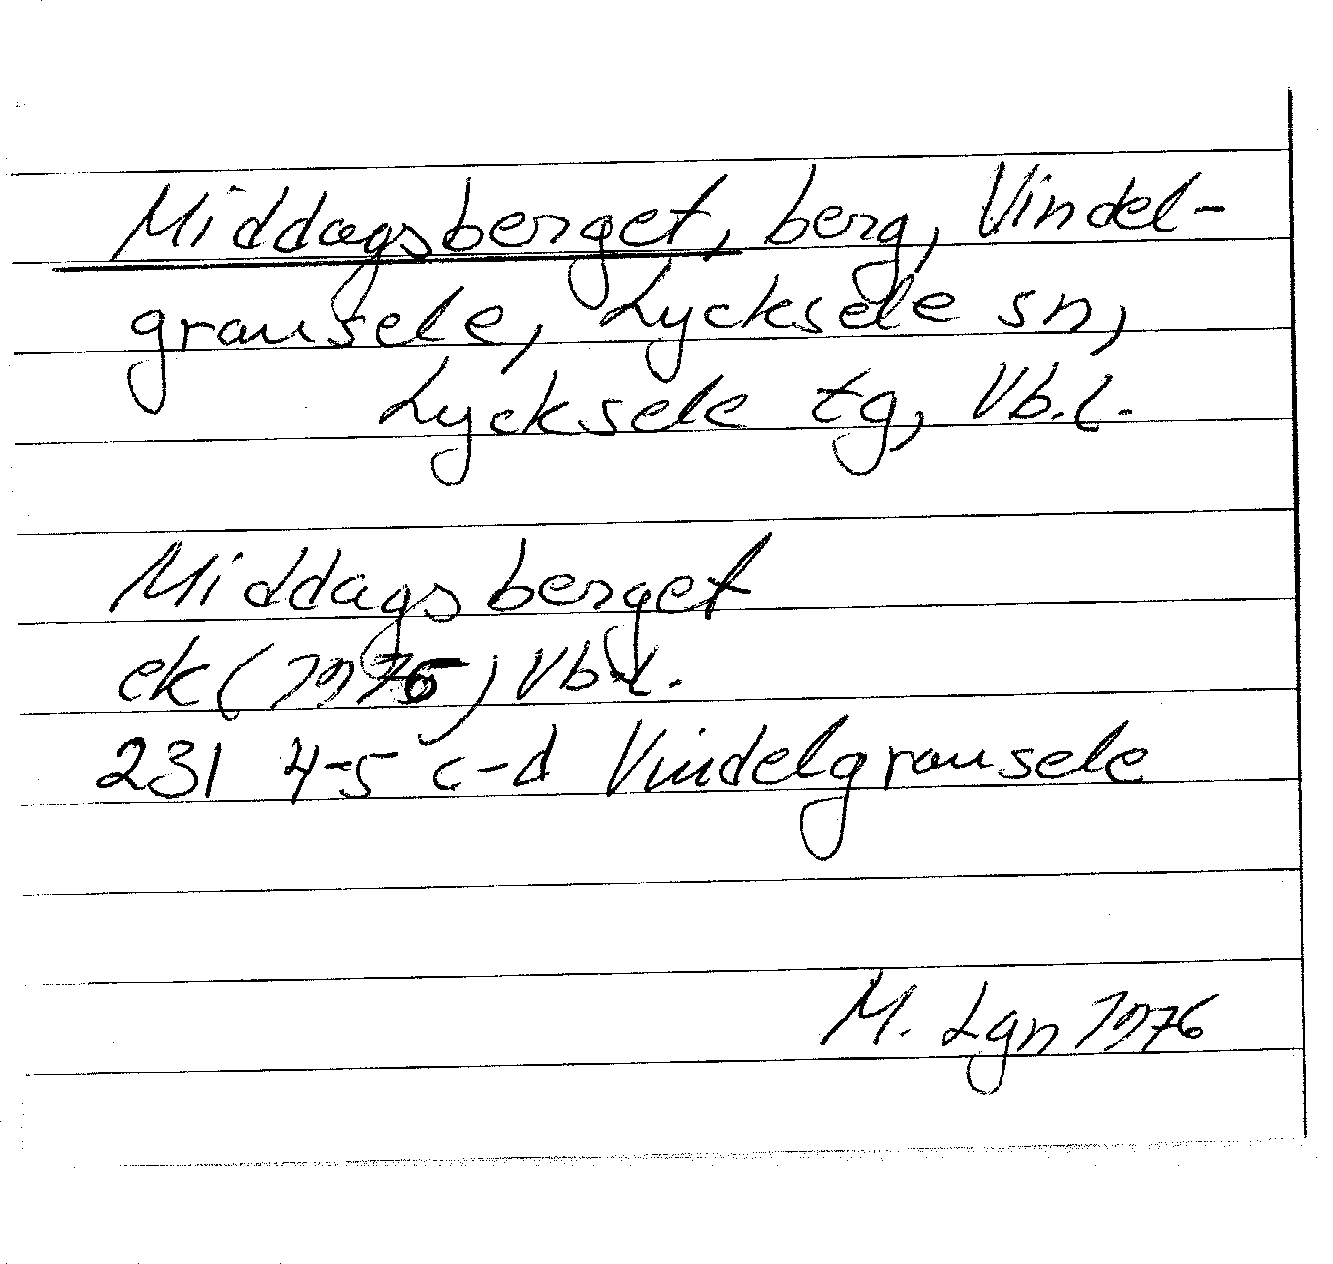 Middagsberget, berg, Vindel-
gransele, Lycksele sn,
Lycksele tg, Vb.l.
Middagsberget
ek (1976) Vb.l.
231 4-5 c-d Vindelgransele
M. Lgn 1976